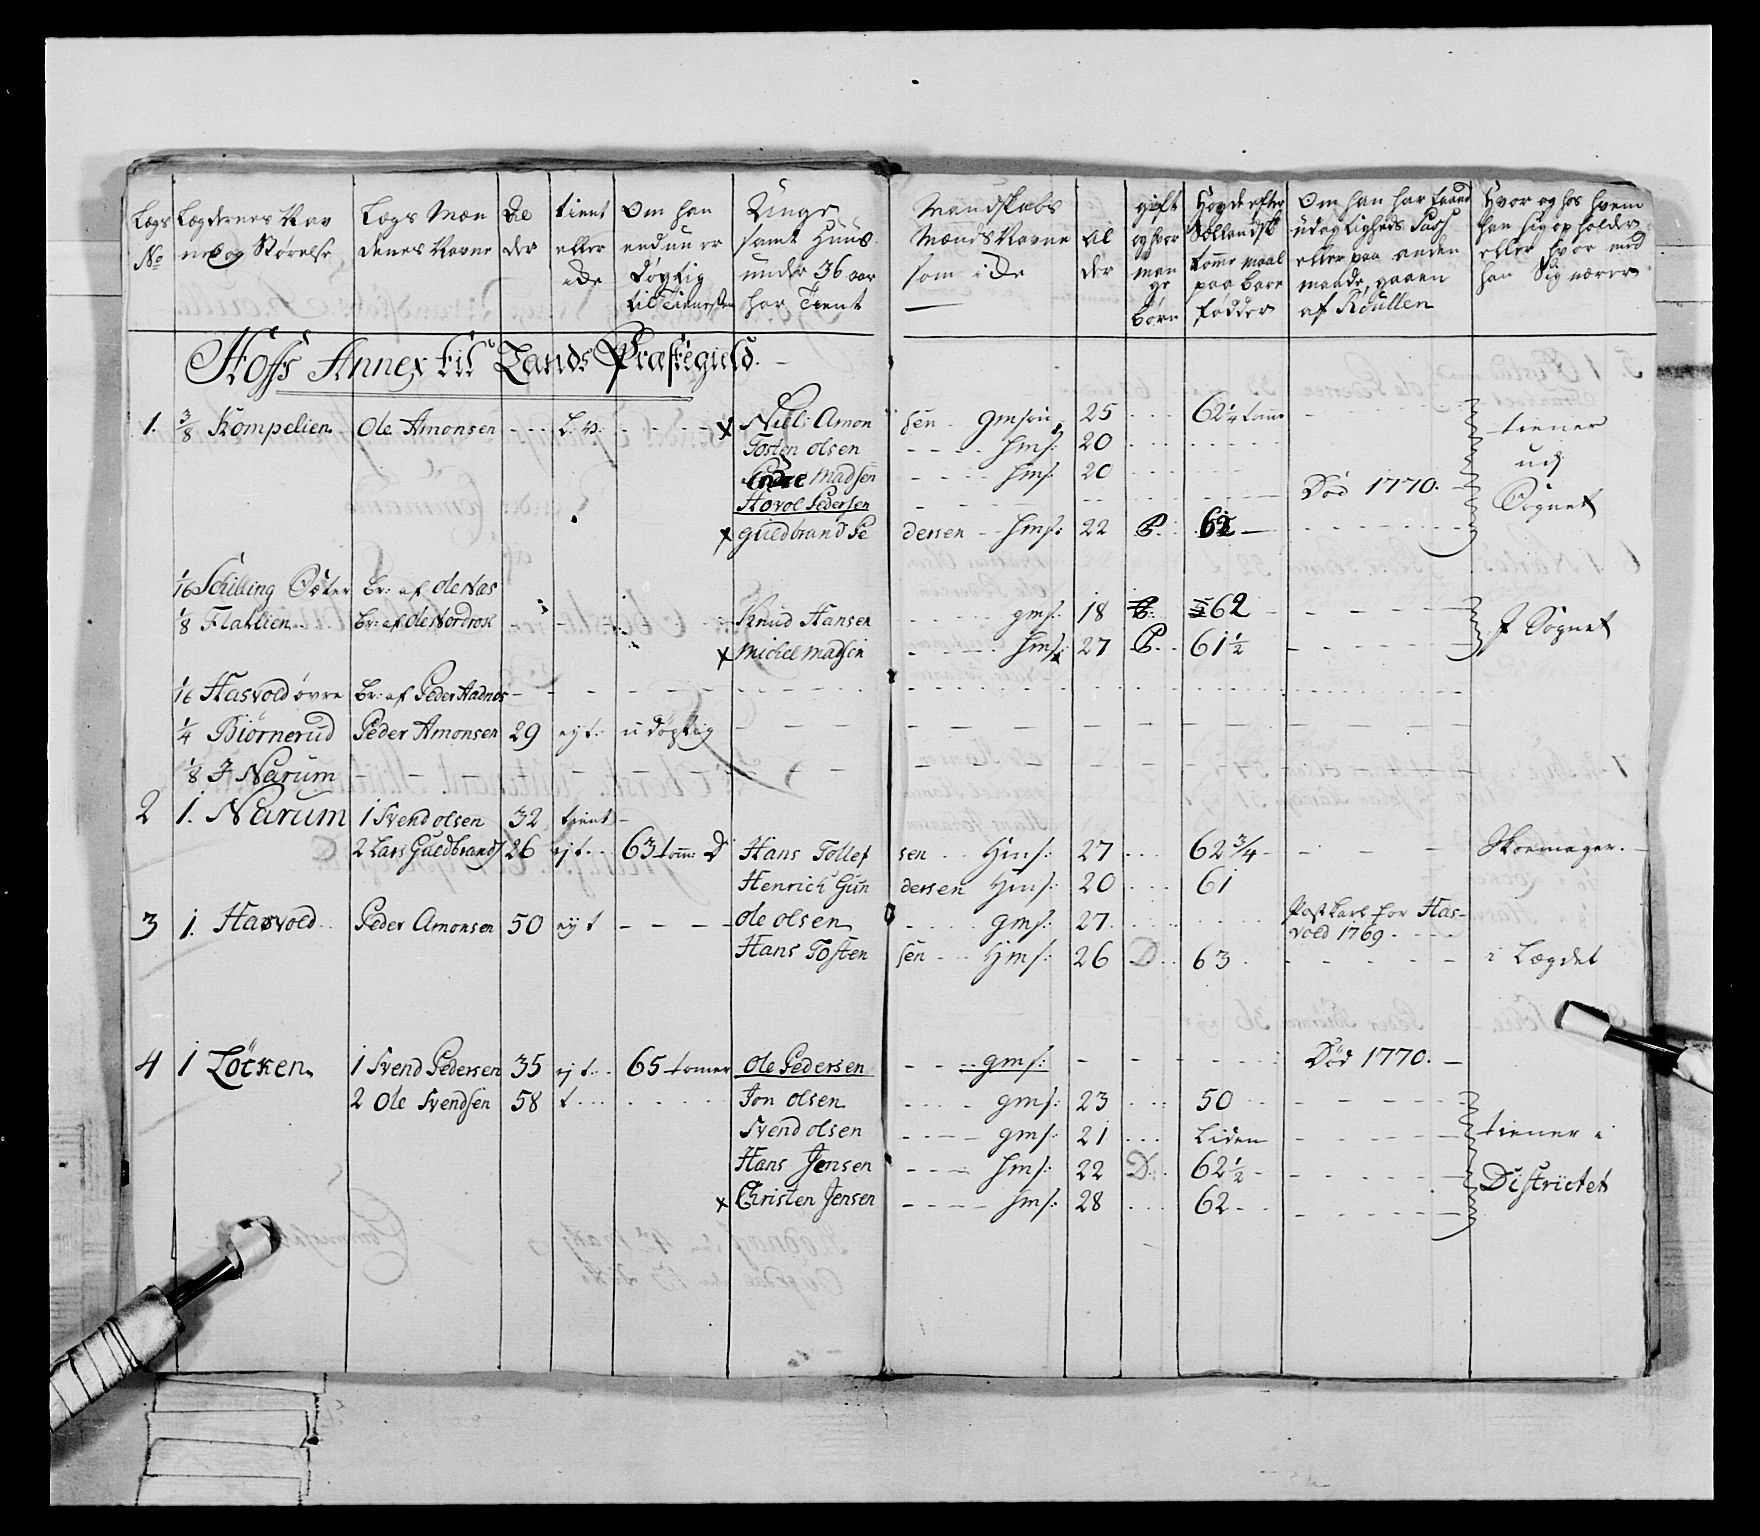 Lægs No | Lægdernes Navne og Størelse | Lægs Mændenes Navne | Alder | tient eller icke | Om han endnu er Døgtig til Tienesten | Unge samt Huus under 36 aar har Tient | Mandskabs Mænds Navne som icke | Alder | gift og hvor mange børn | Høyde efter Siellandsk tomme maal paa bare fødder | Om han har faaed udøgtigheds Pass eller paa anden maade, gaaen af Roullen | Hvor og hos hvem han sig opholder eller hvor med han Sig nærer
Hoffs Annex til Lands Præstegield.
1. | 3/8 Kompelien | Ole Amonsen | x Niels Amonsen gmson | 25 | 62 1/4 tom | tiener
Tosten Olsen hms: | 20 | ud
Madsen hms: | 20 | Død 1770. | Sognet
Hovol Pedersen
x Guldbrand Pedersen hms: | 22 | 62
1/16 Schilling Øster | br: af Ole Næs
1/8 Flatlien | br: af Ole Nordrosk | Knud Hansen gms: | 18 | 62 | Sognet
x Michel Madsen hms: | 27 | 61 1/2
1/16 Hasvold øvre | br: af Peder Aadnes
1/4 Biørnerud | Peder Amonsen | 29 | eyt | udøgtig
1/8 I Narum
2 | 1. Narum | 1 Svend Olsen | 32 | tient
2 Lars Guldbrands | 26 | ejt | 63 tom: D | Hans Tollefsen Hms: | 27 | 62 3/4 | Skoemager.
Henrich Gundersen Hms: | 20 | 61
3 | 1. Hasvold | Peder Amonsen | 50 | eyt | Ole Olsen gms: | 27 | Postkarl for Has-
vold 1769
Hans Tostensen Hms: | 26 | D | 63 | i Lægdet
4 | 1 Löcken | 1 Svend Pedersen | 35 | ejt | 65 tomer | Ole Pedersen gms: | Død 1770.
2 Ole Svendsen | 58 | t | Jon Olsen gms: | 23 | 50
Svend Olsen gms: | 21 | liden | tiener i
Hans Jensen hms: | 22 | D. | 62 1/2 | Districtet
x Christen Jensen hms: | 28 | 62